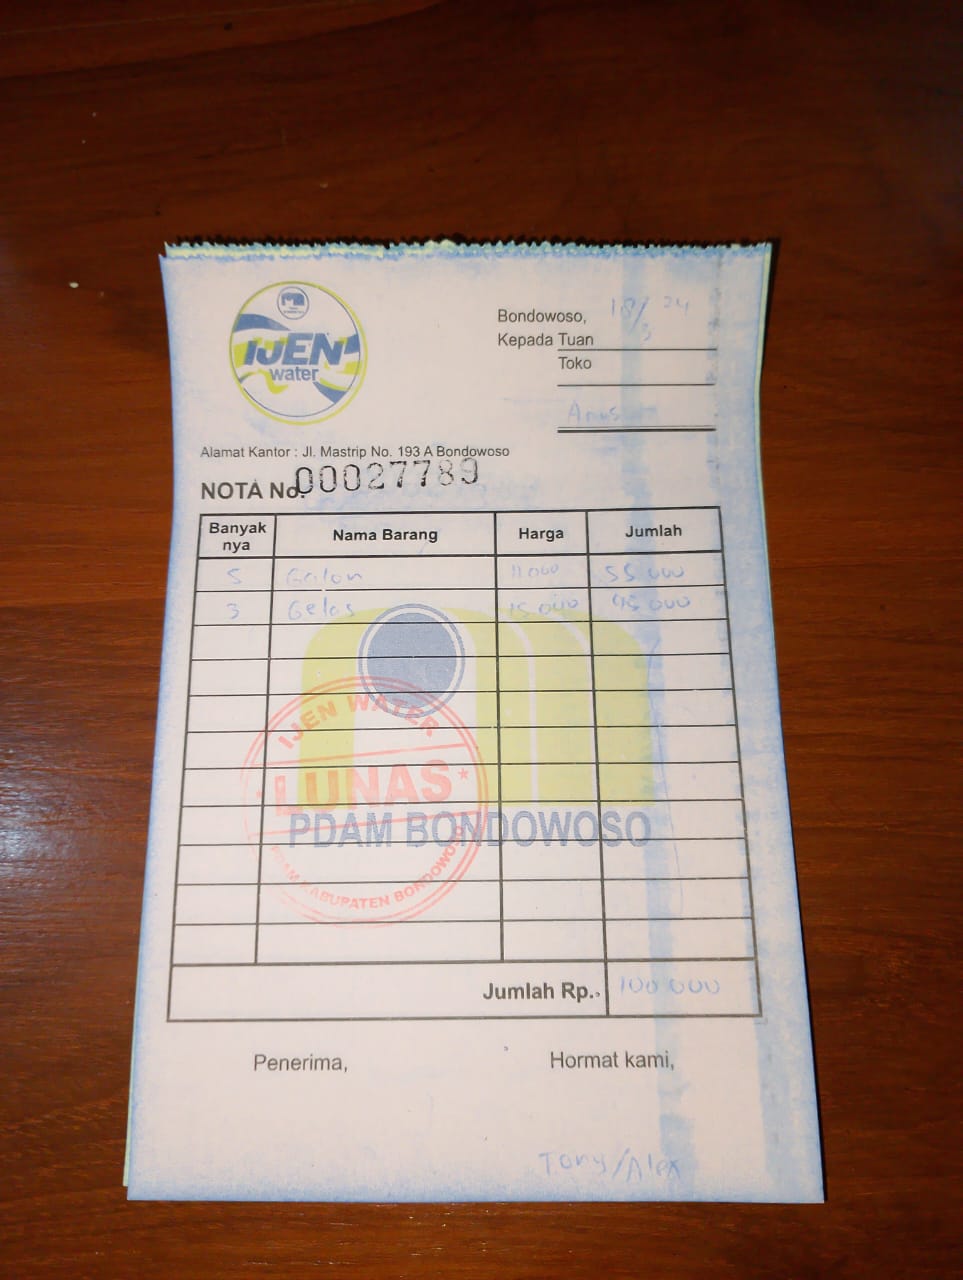 IJEN
water
Bondowoso, 18/3 24
Kepada Tuan
Toko
Alamat Kantor : Jl. Mastrip No. 193 A Bondowoso
NOTA No. 00027789
Banyak nya Nama Barang Harga Jumlah
5 Galon 11 000 55 000
3 Gelas 15 000 45 000
IJEN WATER
LUNAS
PDAM BONDOWOSO
PDAM KABUPATEN BONDOWOSO
Jumlah Rp.. 100 000
Penerima, Hormat kami,
Tony/Alex